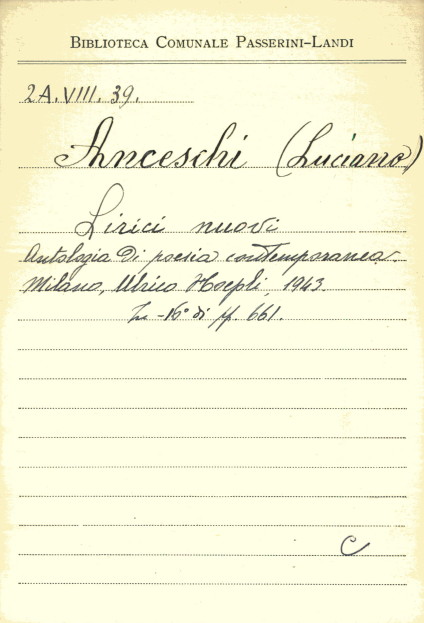 BIBLIOTECA COMUNALE PASSERINI-LANDI
2A.VIII.39.
Anceschi (Luciano)
Lirici nuovi
Antologia di poesia contemporanea.
Milano, Ulrico Hoepli, 1943.
In-16° di pp. 661.
C